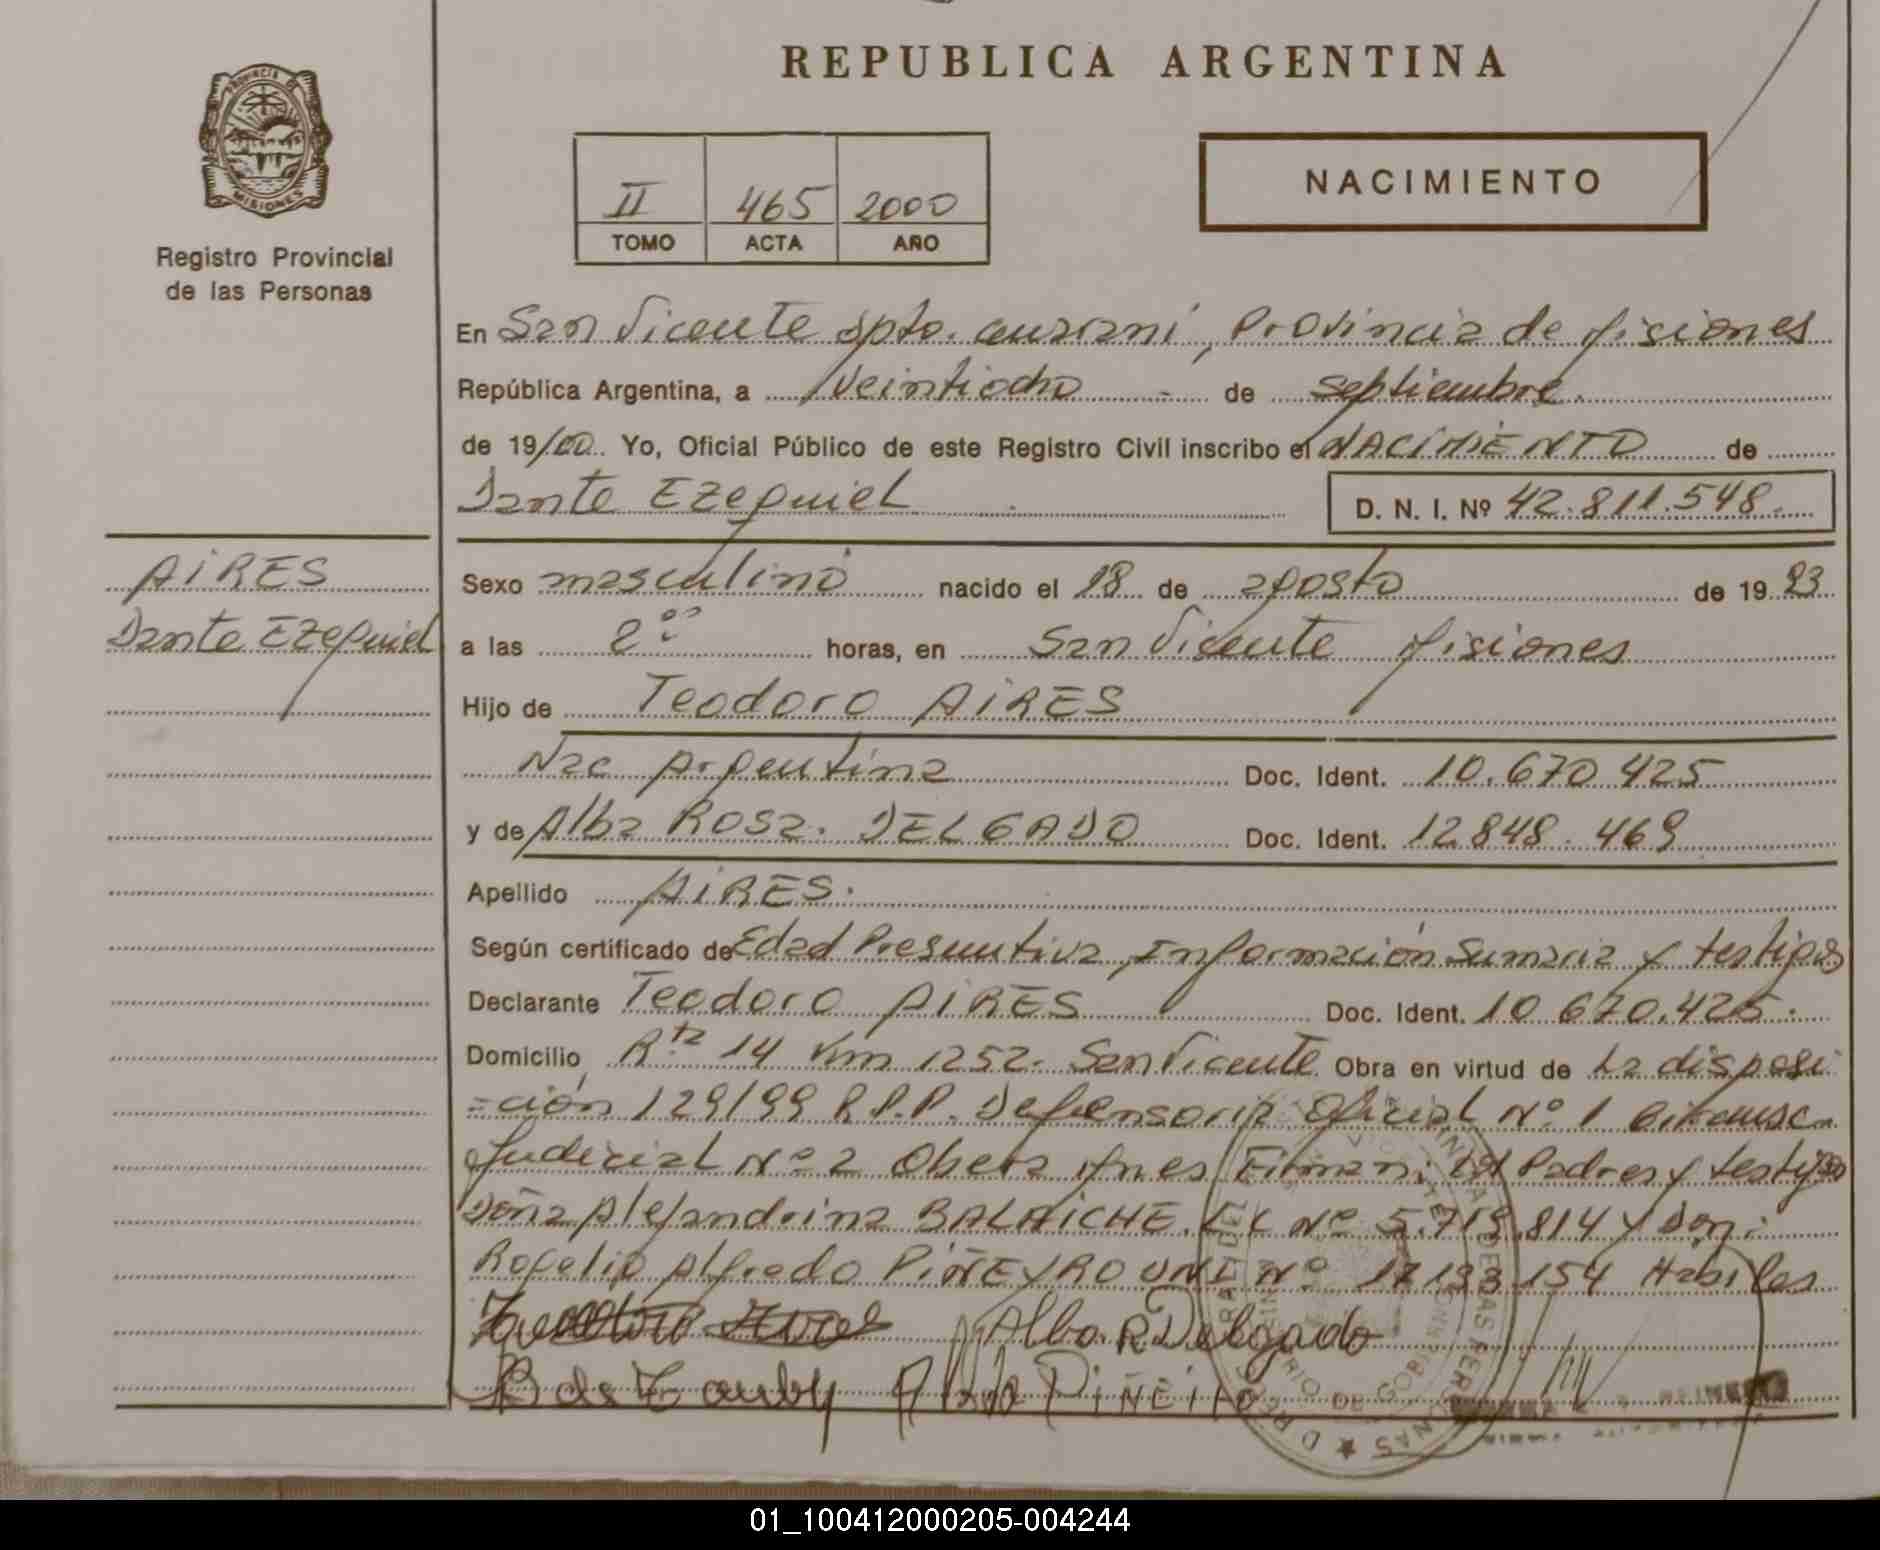 REPUBLICA ARGENTINA
PROVINCIA DE
MISIONES
Registro Provincial
de las Personas
II 465 2000
TOMO ACTA AÑO
NACIMIENTO
En San Vicente dpto. Guaraní, Provincia de Misiones
República Argentina, a veintiocho de septiembre
de 19/00. Yo, Oficial Público de este Registro Civil inscribo el NACIMIENTO de
Dante EZequiel D. N. I. Nº 42.811.548.
AiRES
Dante EZequiel
Sexo masculino nacido el 18 de agosto de 19 93
a las 2 horas, en San Vicente Misiones
Hijo de Teodoro AiRES
Nac Argentina Doc. Ident. 10.670.425
y de Alba ROSa. DELGADO Doc. Ident. 12.848.469
Apellido AiRES.
Según certificado de Edad Presuntiva, Información Sumaria y testigos
Declarante Teodoro AiRES Doc. Ident. 10.670.425.
Domicilio Rta 14 Km 1252. San Vicente Obra en virtud de La disposi
=ción 129/99 R.P.P. Defensoría Oficial Nº 1 Circunsc.
Judicial Nº 2 Obera Mnes Firman; Padres y testigos
Doña Alejandrina BALAICHE. Nº 5.719.814 y Don:
Rogelio Alfredo PIÑEYRO DNI Nº 17.133.154 Hábiles
Alba R Delgado
PiÑEiro
DE GOBIERNO
DE LAS PERSONAS
01_100412000205-004244